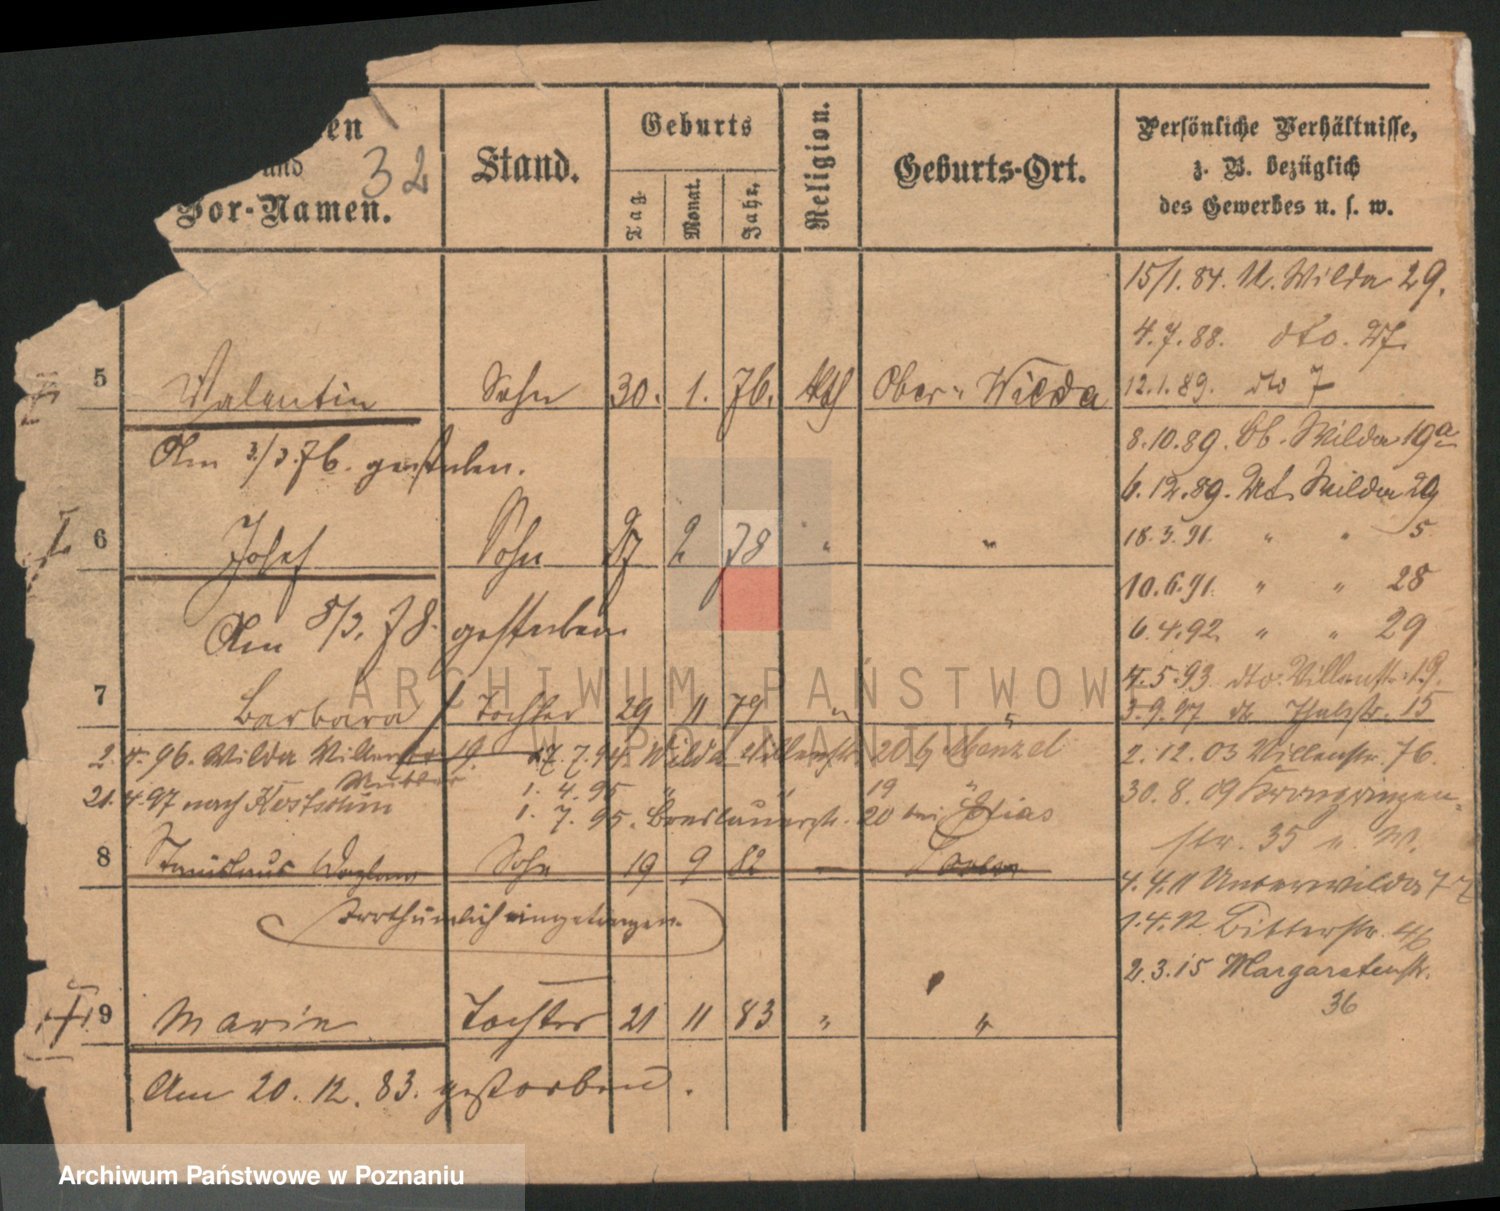 en
und
Vor-Namen.
32
Stand.
Geburts
Tag.
Monat.
Jahr.
Religion.
Geburts-Ort.
Persönliche Verhältnisse,
z. B. bezüglich
des Gewerbes u. s. w.
15/1. 84. U. Wilda 29.
4. 7. 88. dto. 27.
5 Valentin Sohn 30. 1. 76. kth Ober- Wilda
12. 1. 89. dto 7
Am 3/3. 76. gestorben.
8. 10. 89. Ob. Wilda 19a
6. 12. 89. Wilda 29
6 Josef Sohn 27 2 78 " "
18. 3. 91. " " 5
10. 6. 91. " " 28
Am 8/3. 78. gestorben
6. 4. 92. " " 29
4. 5. 93. dto. Villenstr. 19.
7 Barbara Tochter 29 11 79 " "
3. 9. 97 15
2. 4. 96. Wilda Villenstr 19. 17. 7. 94. Wilda Villenstr. 20 b/ Menzel
2. 12. 03 Villenstr. 76.
21. 4. 97 nach 1. 4. 95 " " 19 "
1. 7. 95. Breslauerstr. 20 bei
30. 8. 09 Kronprinzen-
str. 35 u. W.
8 Stanislaus Sohn 19 9 82 —
4. 4. 11 Unterwilda
Irrthümlich eingetragen.
1. 4. 12 Bitterstr. 46
2. 3. 15 Margaretenstr.
36
9 Marie Tochter 21 11 83 " "
Am 20. 12. 83. gestorben.
ARCHIWUM PAŃSTWOW
W POZNANIU
Archiwum Państwowe w Poznaniu